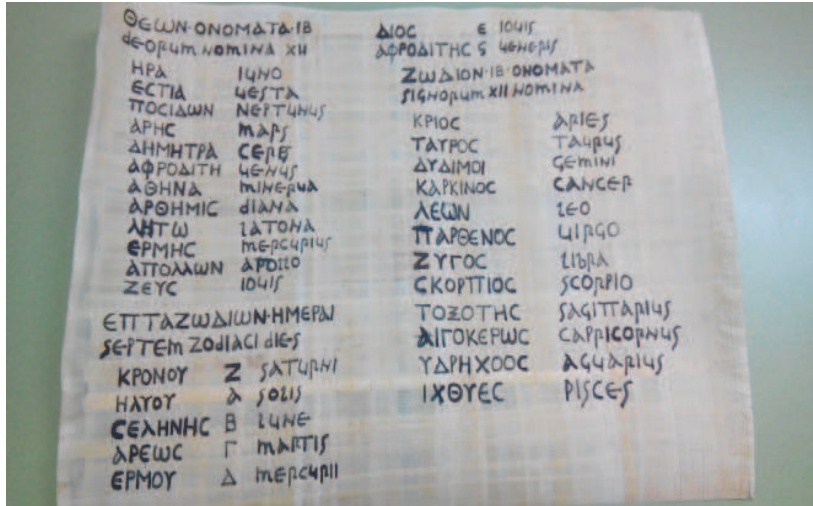 ΘΕΩΝ·ΟΝΟΜΑΤΑ·ΙΒ
deorum nomina XII
ΗΡΑ IUNO
ΕCΤΙΑ UESTA
ΠΟCΙΔΩΝ NEPTUNUS
ΑΡΗC mars
ΔΗΜΗΤΡΑ CERE
ΑΦΡΟΔΙΤΗ UENUS
ΑΘΗΝΑ mINERUA
ΑΡΘΗΜΙC dIANA
ΛΗΤΩ LATONA
ΕΡΜΗC mERCURIUS
ΑΠΟΛΛΩΝ APOLLO
ΖΕΥC IOUIS
ΕΠΤΑΖΩΔΙΩΝ·ΗΜΕΡΑΙ
SEPTEm ZOdIACI dIES
ΚΡΟΝΟΥ Ζ SATURNI
ΗΛΥΟΥ Α SOLIS
CΕΛΗΝΗC Β LUNE
ΑΡΕΩC Γ mARTIS
ΕΡΜΟΥ Δ mERCURII
ΔΙΟC Ε IOUIS
ΑΦΡΟΔΙΤΗC Ϛ UENERIS
ΖΩΔΙΟΝ·ΙΒ·ΟΝΟΜΑΤΑ
SIGNORUm XII NOmINA
ΚΡΙΟC ARIES
ΤΑΥΡΟC TAURUS
ΔΥΔΙΜΟΙ GEmINI
ΚΑΡΚΙΝΟC CANCER
ΛΕΩΝ LEO
ΠΑΡΘΕΝΟC UIRGO
ΖΥΓΟC LIBRA
CΚΟΡΠΙΟC SCORPIO
ΤΟΞΟΤΗC SAGITTARIUS
ΑΙΓΟΚΕΡΩC CAPRICORNUS
ΥΔΡΗΧΟΟC AQUARIUS
ΙΧΘΥΕC PISCES